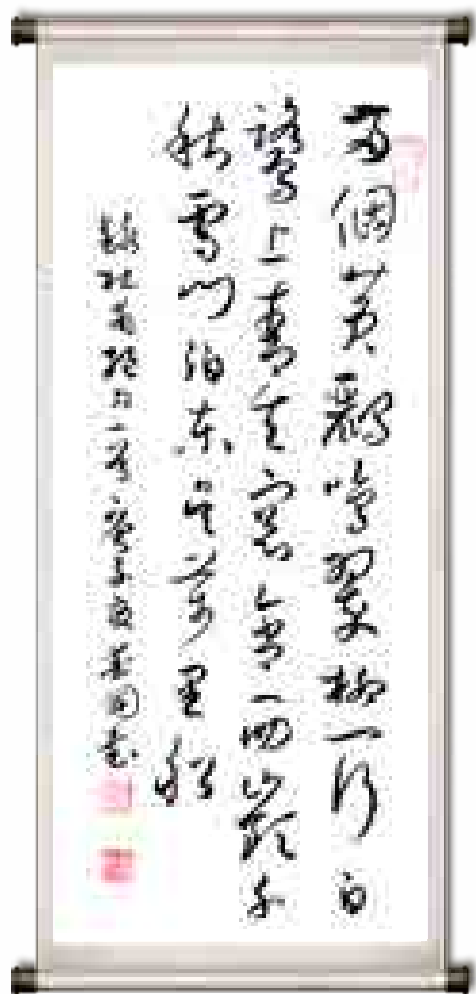 兩個黄鸝鳴翠柳一行白
鷺上青天窗含西嶺千
秋雪門泊東吴萬里船
錄杜甫絶句一首